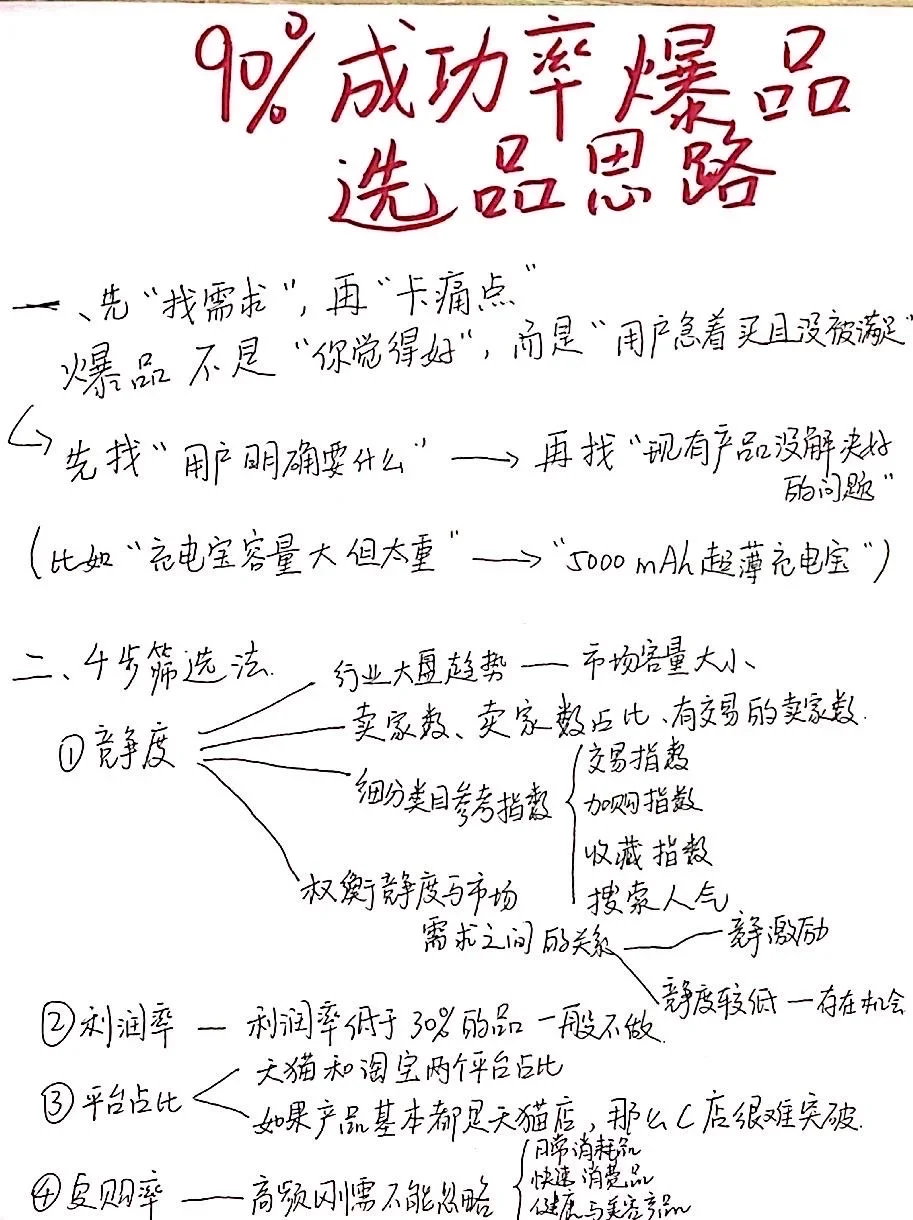 90%成功率爆品
选品思路
一、先“找需求”，再“卡痛点”
爆品不是“你觉得好”，而是“用户急着买且没被满足”
先找“用户明确要什么”——→再找“现有产品没解决好
的问题”
（比如“充电宝容量大但太重”——→“5000mAh超薄充电宝”）
二、4步筛选法.
行业大盘趋势—市场容量大小、
①竞争度
卖家数、卖家数占比、有交易的卖家数.
细分类目参考指数
交易指数
加购指数
收藏指数
搜索人气
权衡竞争度与市场
需求之间的关系
竞争激励
竞争度较低—存在机会
②利润率—利润率低于30%的品一般不做.
③平台占比
天猫和淘宝两个平台占比
如果产品基本都是天猫店，那么C店很难突破.
④复购率——高频刚需不能忽略
日常消耗品
快速消费品
健康与美容产品